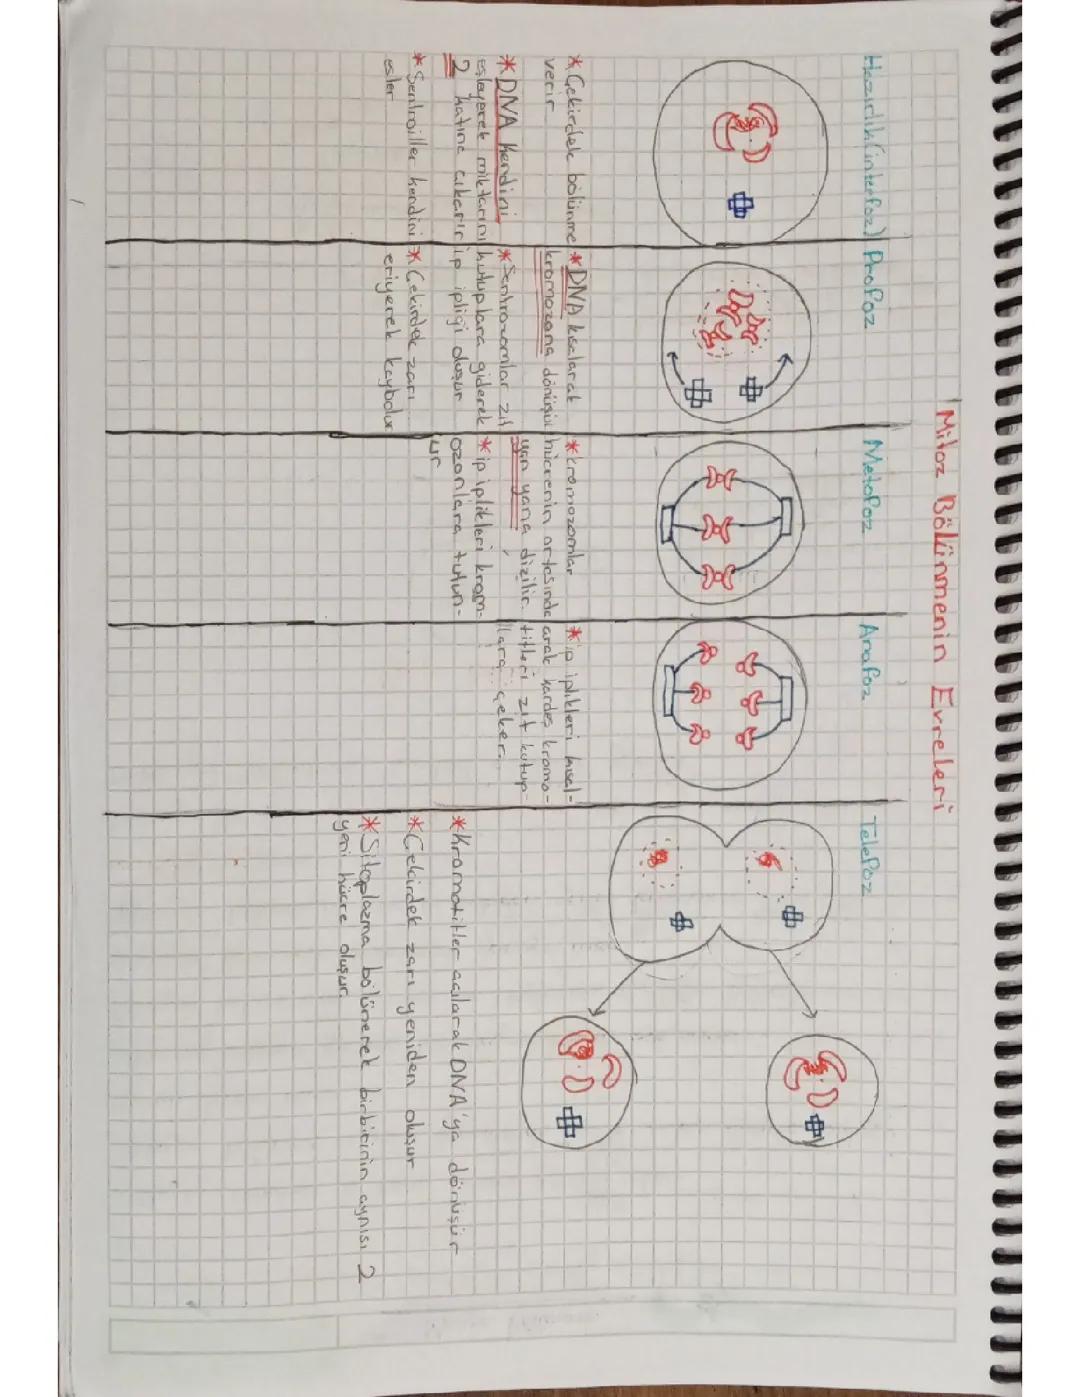 Mitoz Bölünmenin Evreleri
Hazırlık(interfaz)
* Çekirdek bölünme
verir
* DNA kendini
eşleyerek miktarını
2 katına çıkarır
* Sentroiller kendini
eşler
Profaz
* DNA kısalarak
kromozoma dönüşür
* Sentrozomlar zıt
kutuplara giderek
ip ipliği oluşur
* Çekirdek zarı
eriyerek kaybolur
Metafaz
* Kromozomlar
hücrenin ortasında
yan yana dizilir.
* ip iplikleri krom-
ozonlara tutun-
ur
Anafaz
* ip iplikleri kısal-
arak kardeş kromo-
titleri zıt kutup-
lara çeker.
Telefaz
* Kromatitler açılarak DNA'ya dönüşür
* Çekirdek zarı yeniden oluşur
* Sitoplazma bölünerek birbirinin aynısı 2
yeni hücre oluşur.